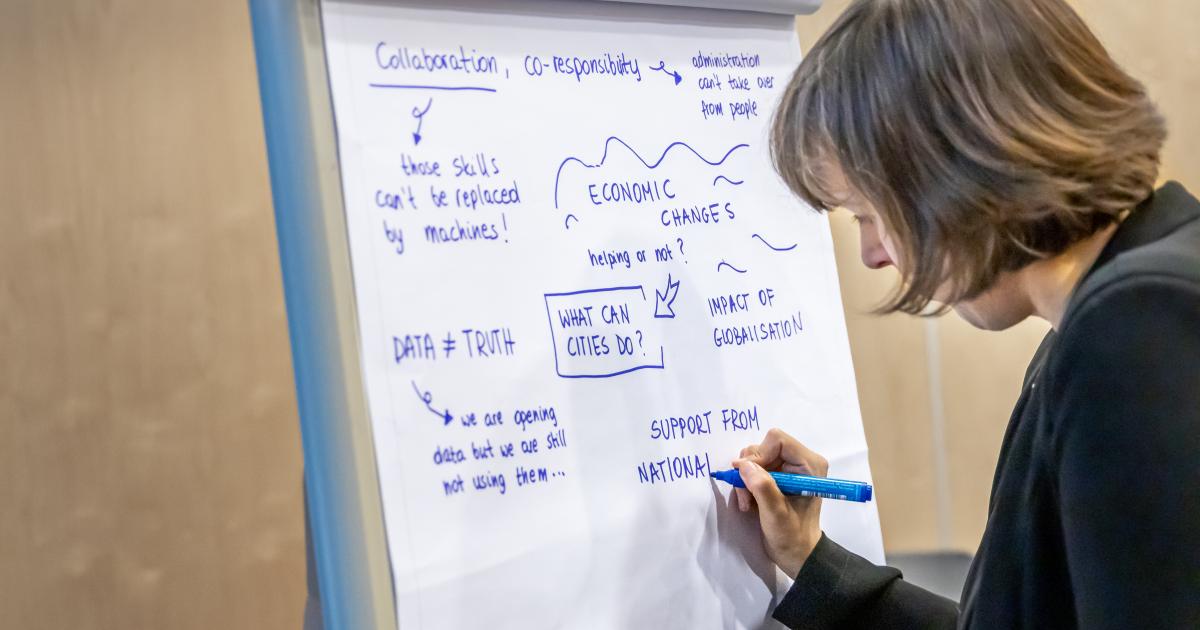 Collaboration, co-responsibility
administration
can't take over
from people
those skills
can't be replaced
by machines!
ECONOMIC
CHANGES
helping or not?
WHAT CAN
CITIES DO?
IMPACT OF
GLOBALISATION
DATA ≠ TRUTH
we are opening
data but we are still
not using them...
SUPPORT FROM
NATIONAL